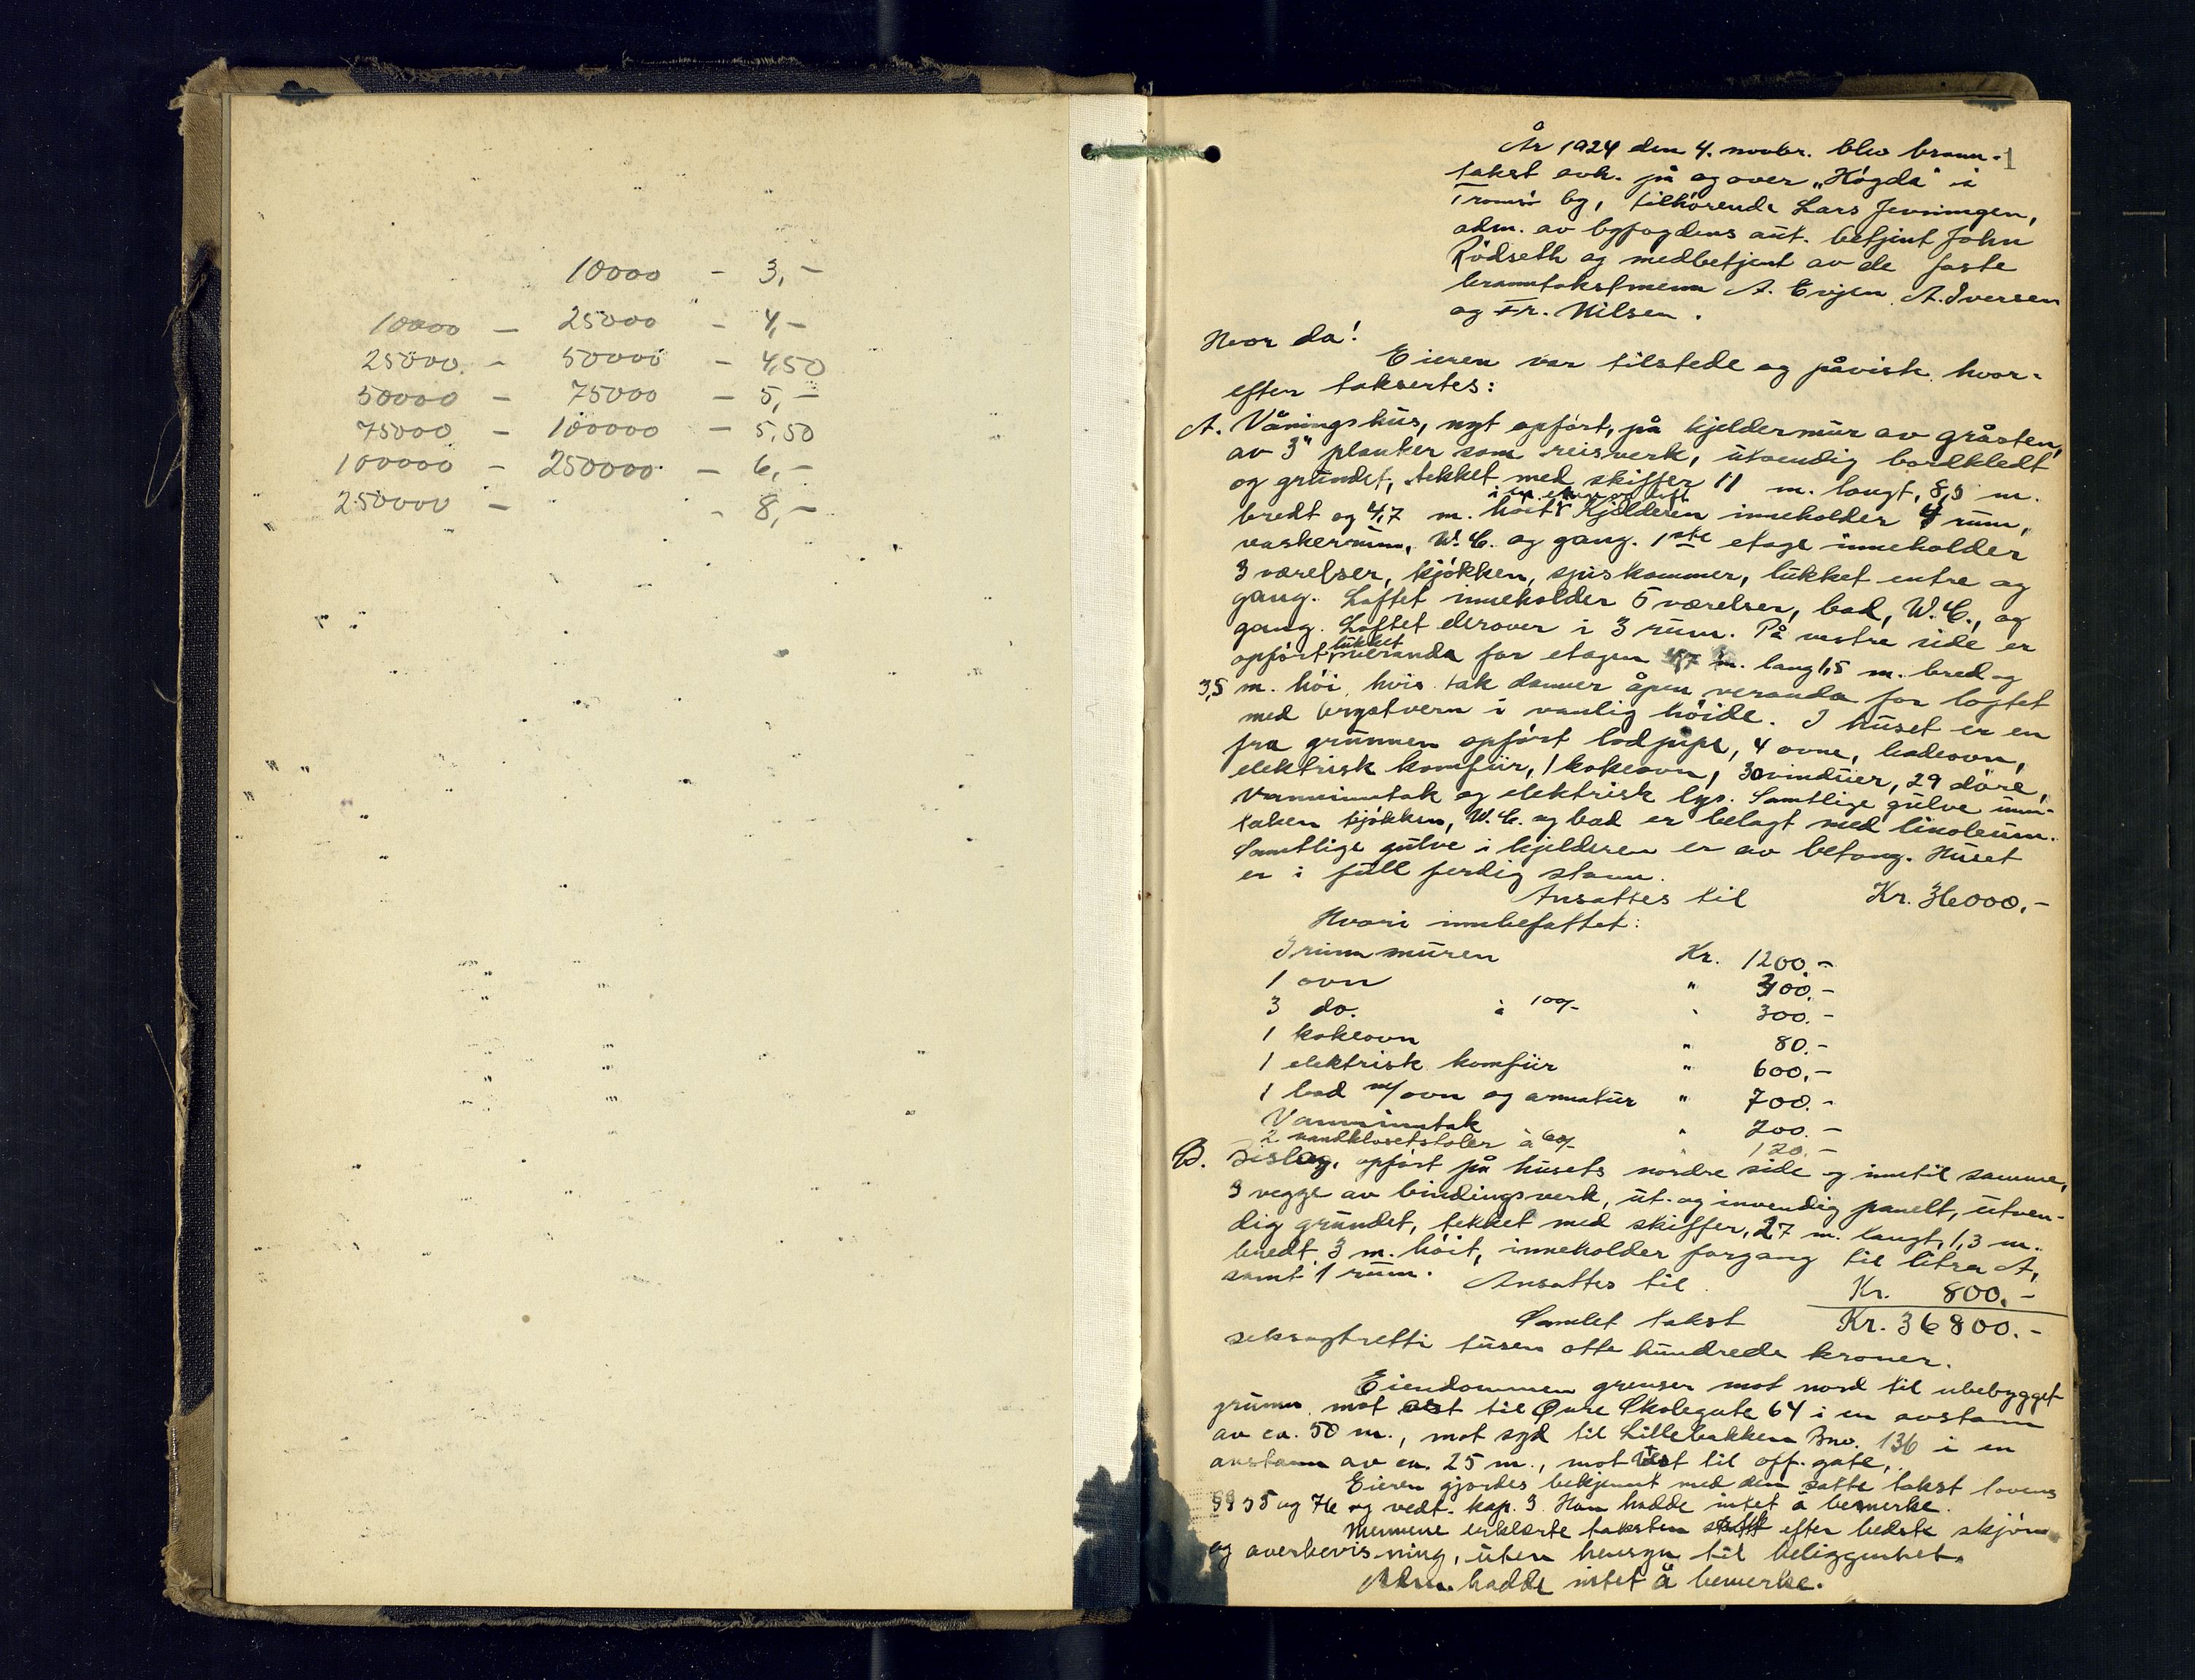 10000 - 3,-
10000 - 25000 - 4,-
25000 - 50000 - 4,50
50000 - 75000 - 5,-
75000 - 100000 - 5,50
100000 - 250000 - 6,-
250000 - - 8,-
1
År 1924 den 4. novbr. blev brann-
takst avh. på og over „Högda" i
Tromsö by, tilhörende Lars Jenningen,
adm. av byfogdens aut. betjent John
Rödseth og medbetjent av de faste
branntakstmenn A. Evjen, A. Iversen
og Fr. Nilsen.
Hvor da!
Eieren var tilstede og påviste hvor-
efter taksertes:
A. Våningshus, nyt opfört, på kjeldermur av gråsten,
av 3" planker som reisverk, utvendig bordkledt
og grundet, tekket med skiffer 11 m. langt, 8,5 m.
i en etage og loft
bredt og 4,7 m. höit. Kjelderen inneholder 4 rum,
vaskerum, W.C. og gang. 1ste etage inneholder
3 værelser, kjökken, spiskammer, lukket entre og
gang. Loftet inneholder 5 værelser, bad, W.C., og
gang. Loftet derover i 3 rum. På vestre side er
lukket
opfört veranda for etagen 4,7 m. lang 1,5 m. bred og
3,5 m. höi, hvis tak danner åpen veranda for loftet
med brystvern i vanlig höide. I huset er en
fra grunnen opfört lodpipe, 4 ovne, badeovn,
elektrisk komfür, 1 kokeovn, 30 vinduer, 29 döre,
vanninntak og elektrisk lys. Samtlige gulve unn-
taken kjökken, W.C. og bad er belagt med linoleum.
Samtlige gulve i kjelderen er av betong. Huset
er i full ferdig stann.
Ansattes til Kr. 36000,-
Hvori innbefattet:
Grunnmuren Kr. 1200.-
1 ovn " 300.-
3 do. à 100/- " 300.-
1 kokeovn " 80.-
1 elektrisk komfür " 600,-
1 bad m/ovn og armatur " 700.-
Vanninntak " 200.-
2 vandklosetstoler à 60/- " 120.-
B. Bislag, opfört på husets nordre side og inntil samme,
3 vegge av bindingsverk, ut- og invendig panelt, utven-
dig grundet, tekket med skiffer, 2,7 m. langt, 1,3 m.
bredt, 3 m. höit, inneholder forgang til litra A,
samt 1 rum. Ansattes til Kr. 800.-
Samlet takst Kr. 36800.-
seksogtretti tusen otte hundrede kroner.
Eiendommen grenser mot nord til ubebygget
grunn, mot öst til Övre Skolegate 64 i en avstann
av ca. 50 m., mot syd til Lillebakken Bno. 136 i en
avstann av ca. 25 m., mot vest til off. gate,
Eieren gjordes bekjennt med den satte takst lovens
§§ 35 og 76 og vedt. kap. 3. Han hadde intet å bemerke.
Mennene erklærte taksten satt efter bedste skjön
og overbevisning, uten hensyn til beliggenhet.
Adm. hadde intet å bemerke.